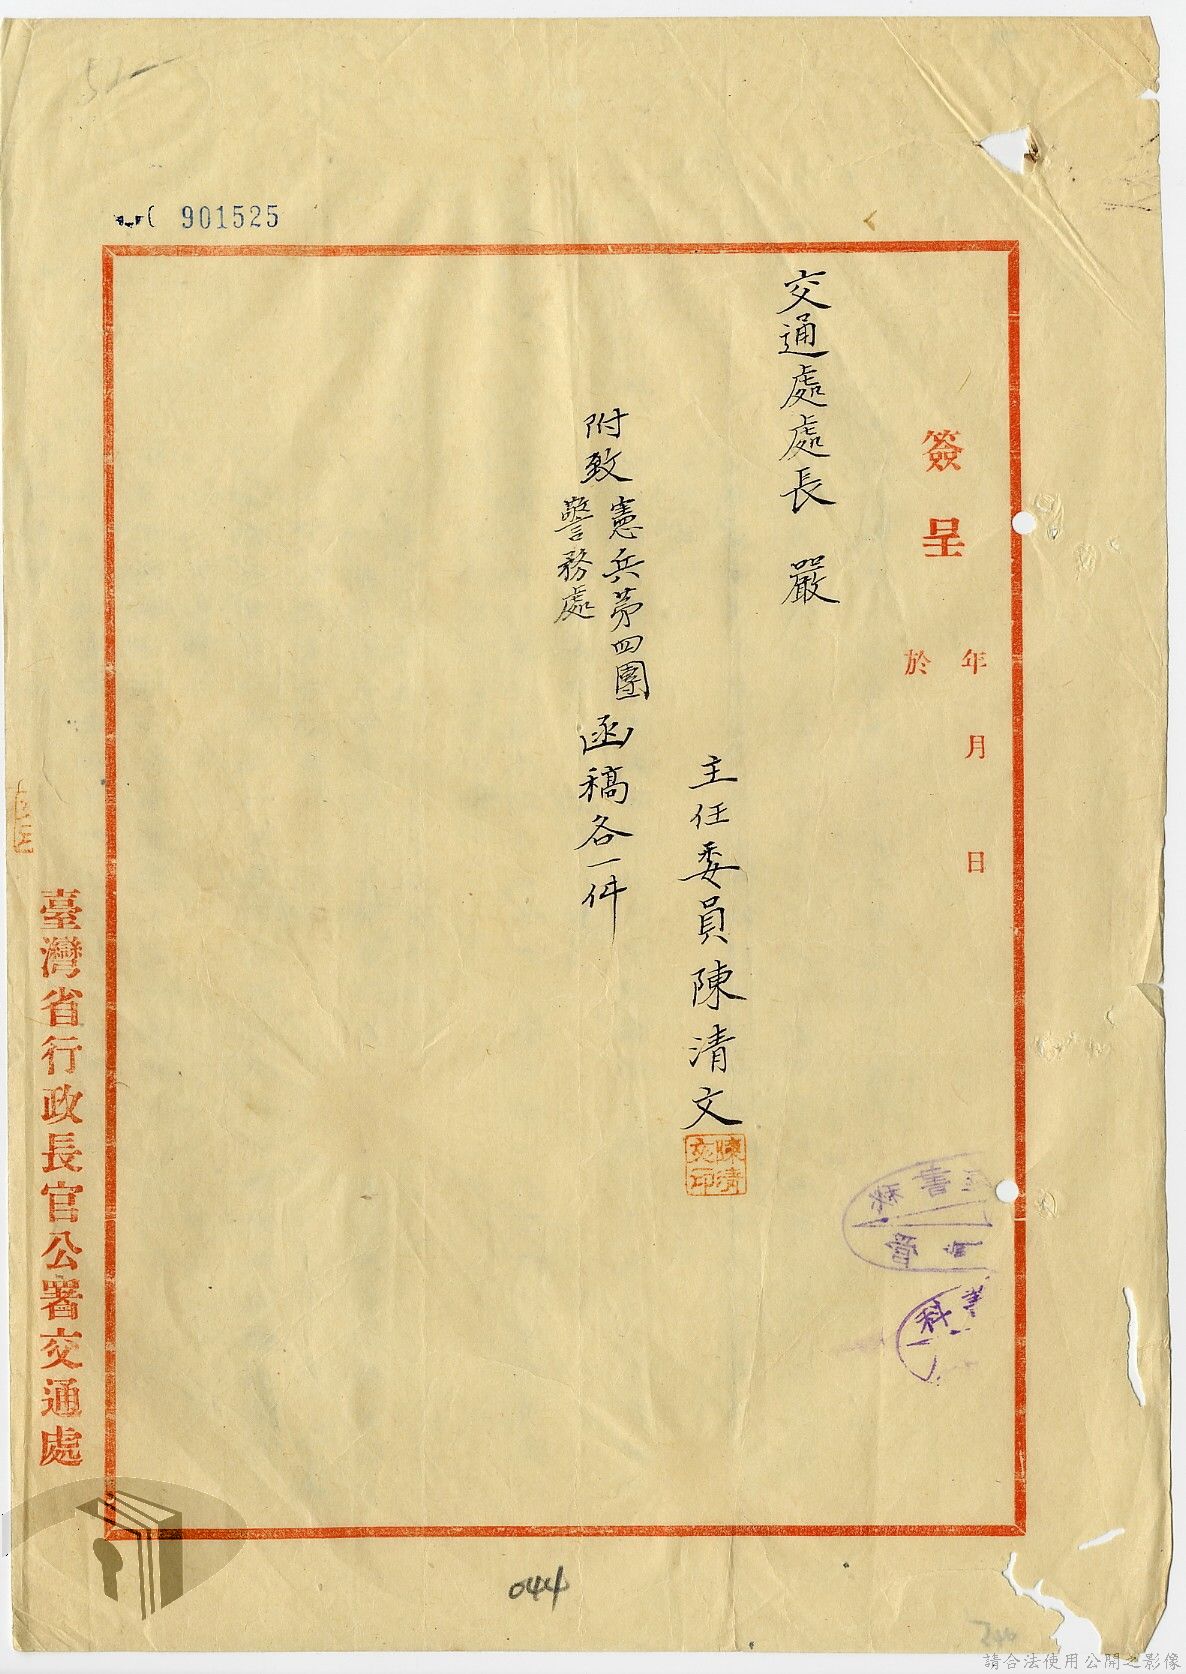 901525
簽呈
年 月 日
於
交通處處長 嚴
主任委員陳清文
陳清文印
附致憲兵第四團警務處函稿各一件
臺灣省行政長官公署交通處
秘書
科
044
請合法使用公開之影像